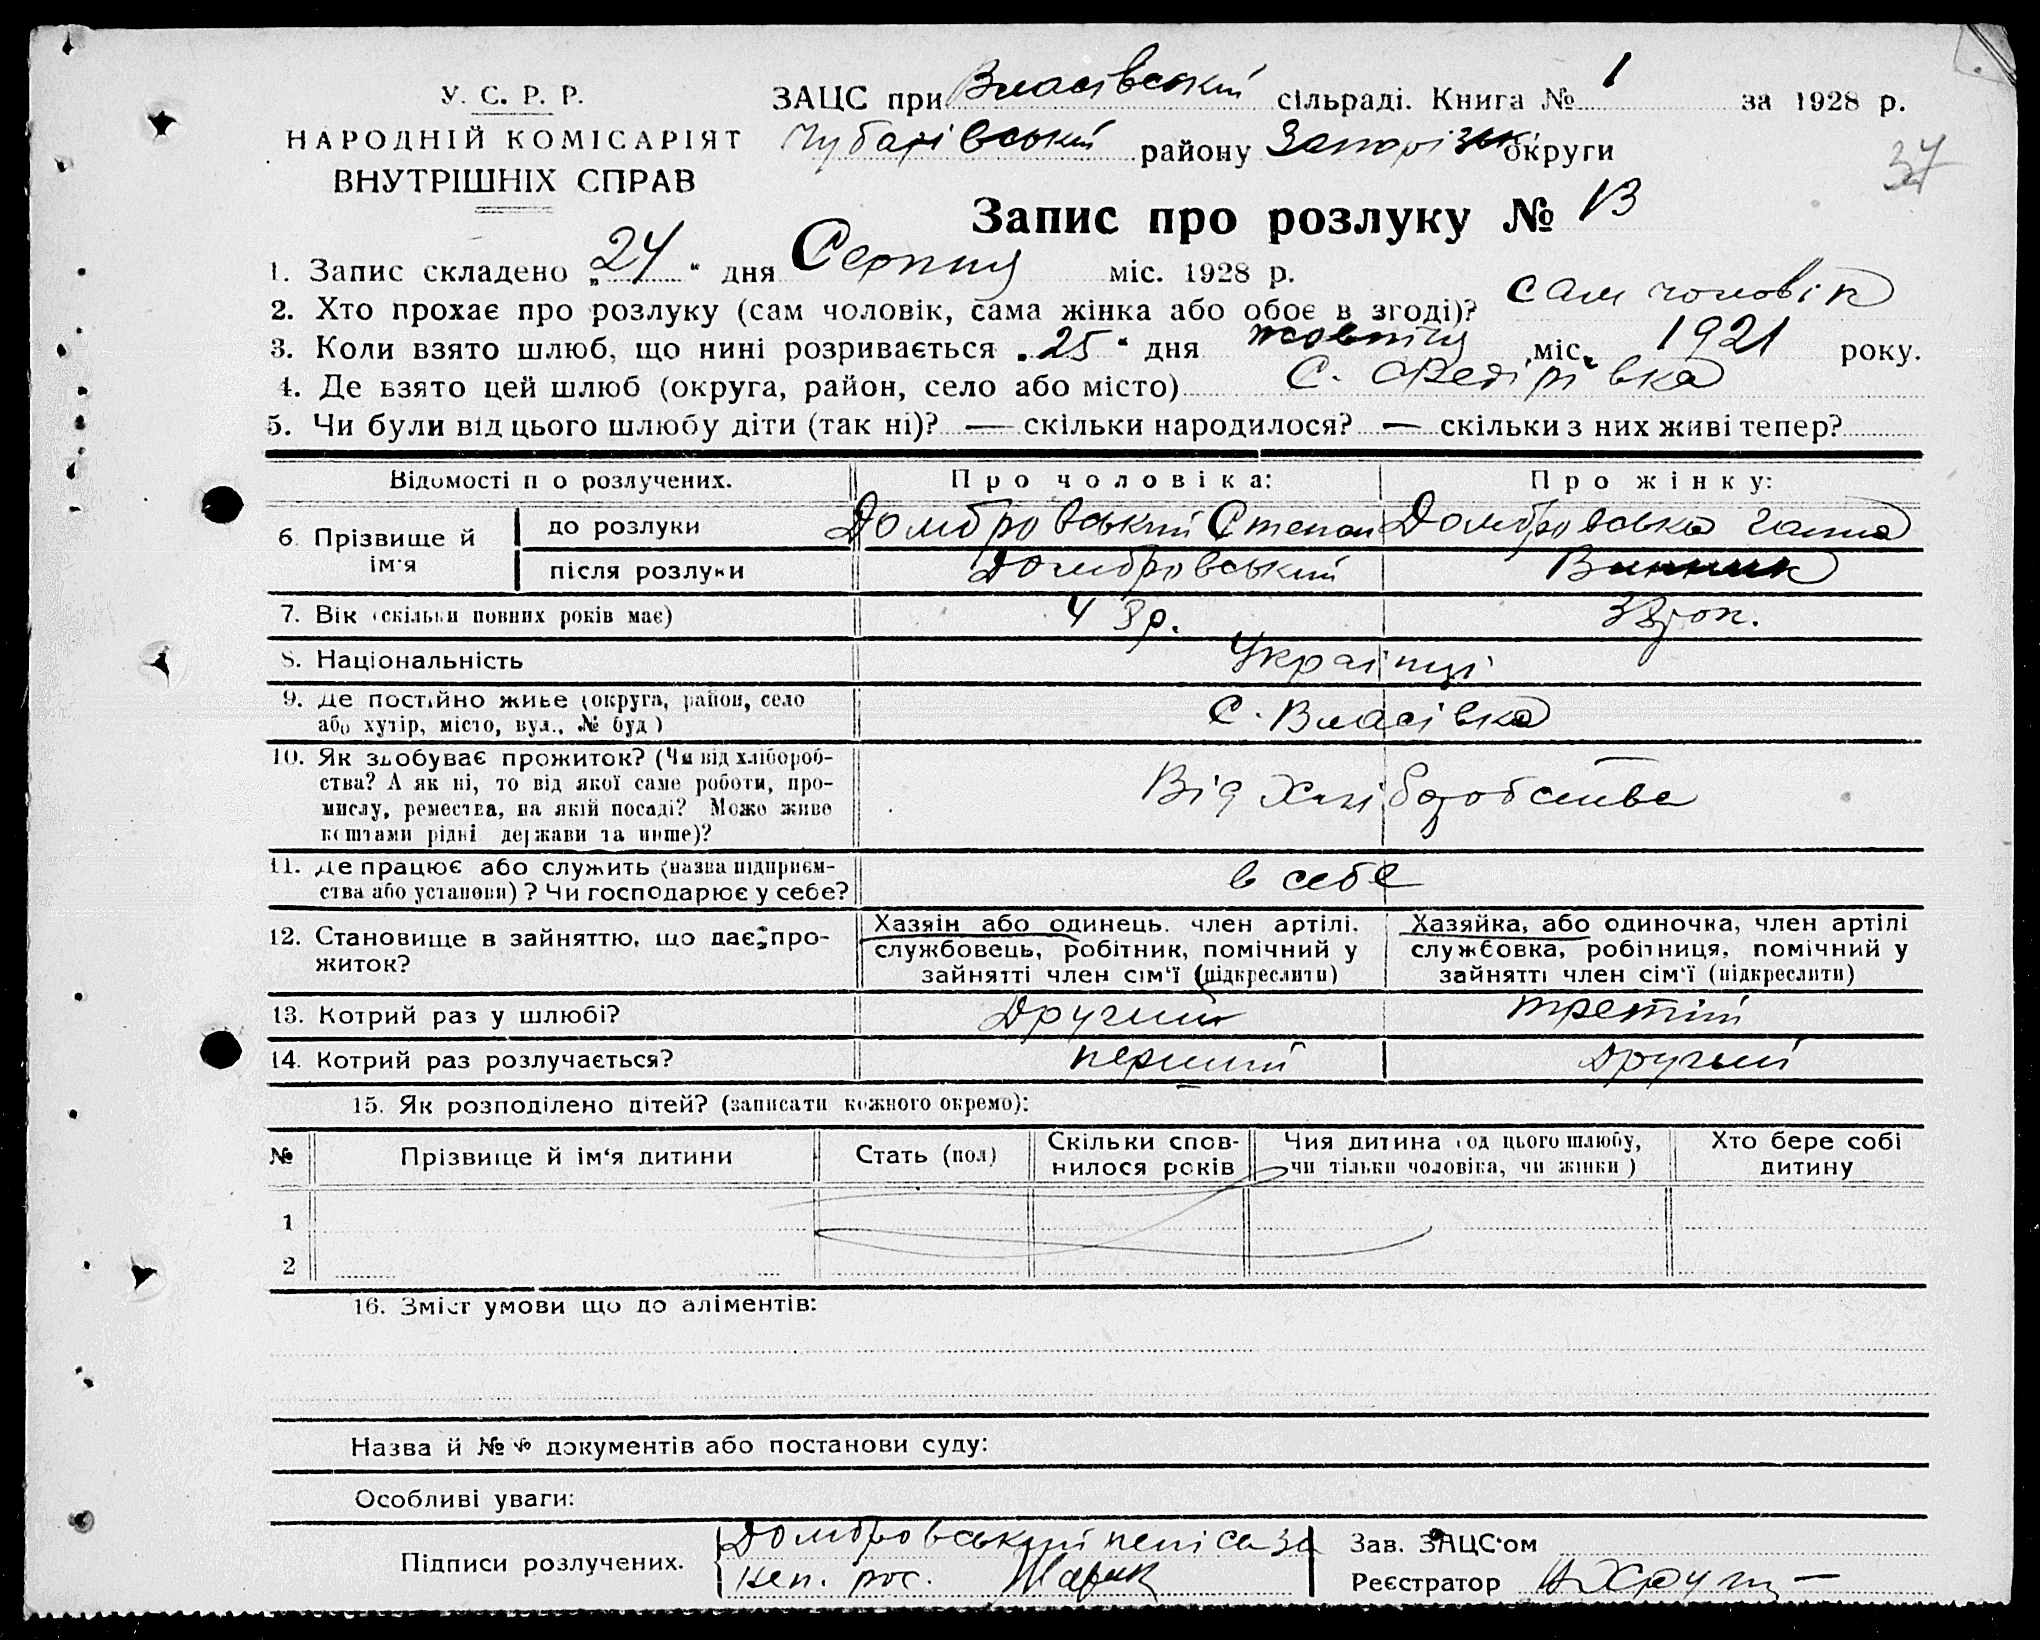 У. С. Р. Р.
НАРОДНІЙ КОМІСАРІЯТ
ВНУТРІШНІХ СПРАВ
ЗАЦС при Власівській сільраді. Книга № 1 за 1928 р.
Чубарівський району Запорізьк округи
37
Запис про розлуку № 13
1. Запис складено „24“ дня Серпня міс. 1928 р.
2. Хто прохає про розлуку (сам чоловік, сама жінка або обоє в згоді)? сам чоловік
3. Коли взято шлюб, що нині розривається „25“ дня жовтня міс. 1921 року.
4. Де взято цей шлюб (округа, район, село або місто) С. Федірівка
5. Чи були від цього шлюбу діти (так ні)? — скільки народилося? — скільки з них живі тепер?
Відомості п о розлучених. Про чоловіка: Про жінку:
6. Прізвище й ім'я до розлуки Домбровський Степан Домбровська Ганна
після розлуки Домбровський Винник
7. Вік (скільки повних років має) 43р. 38 рок.
8. Національність Українці
9. Де постійно живе (округа, район, село
або хутір, місто, вул., № буд) С. Власівка
10. Як здобуває прожиток? (Чи від хлібороб-
ства? А як ні, то від якої саме роботи, про-
мислу, ремества, на якій посаді? Може живе
коштами рідні держави та инше)? Від Хліборобства
11. Де працює або служить (назва підприєм-
ства або установи)? Чи господарює у себе? в себе
12. Становище в зайняттю, що дає про-
житок?
Хазяїн або одинець. член артілі,
службовець, робітник, помічний у
зайнятті член сім'ї (підкреслити)
Хазяйка, або одиночка, член артілі
службовка, робітниця, помічний у
зайнятті член сім'ї (підкреслити)
13. Котрий раз у шлюбі? Другий третій
14. Котрий раз розлучається? перший другий
15. Як розподілено дітей? (записати кожного окремо):
№ Прізвище й ім'я дитини Стать (пол) Скільки спов-
нилося років Чия дитина (од цього шлюбу,
чи тільки чоловіка, чи жінки) Хто бере собі
дитину
1
2
16. Зміст умови що до аліментів:
Назва й №№ документів або постанови суду:
Особливі уваги:
Підписи розлучених. Домбровський за
неп. рос.
Зав. ЗАЦС'ом
Реєстратор